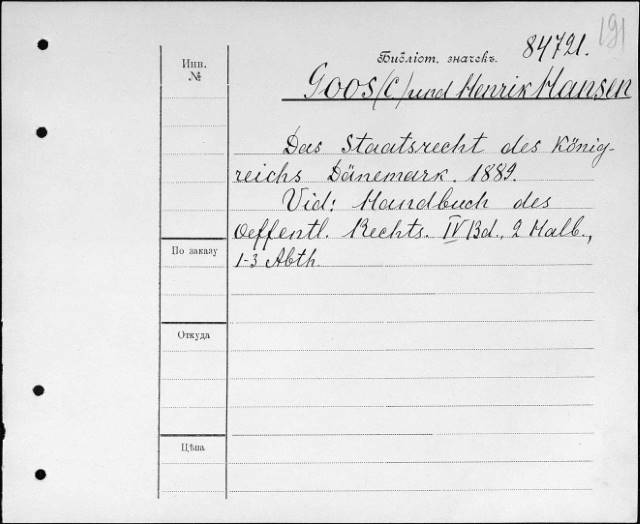 191
84721.
Инв.
№
Библіот. значекъ.
Goos (C) und Henrik Hansen
Das Staatsrecht des König-
reichs Dänemark. 1889.
Vid: Handbuch des
Oeffentl. Rechts. IV Bd., 2 Halb.,
1-3 Abth.
По заказу
Откуда
Цѣна